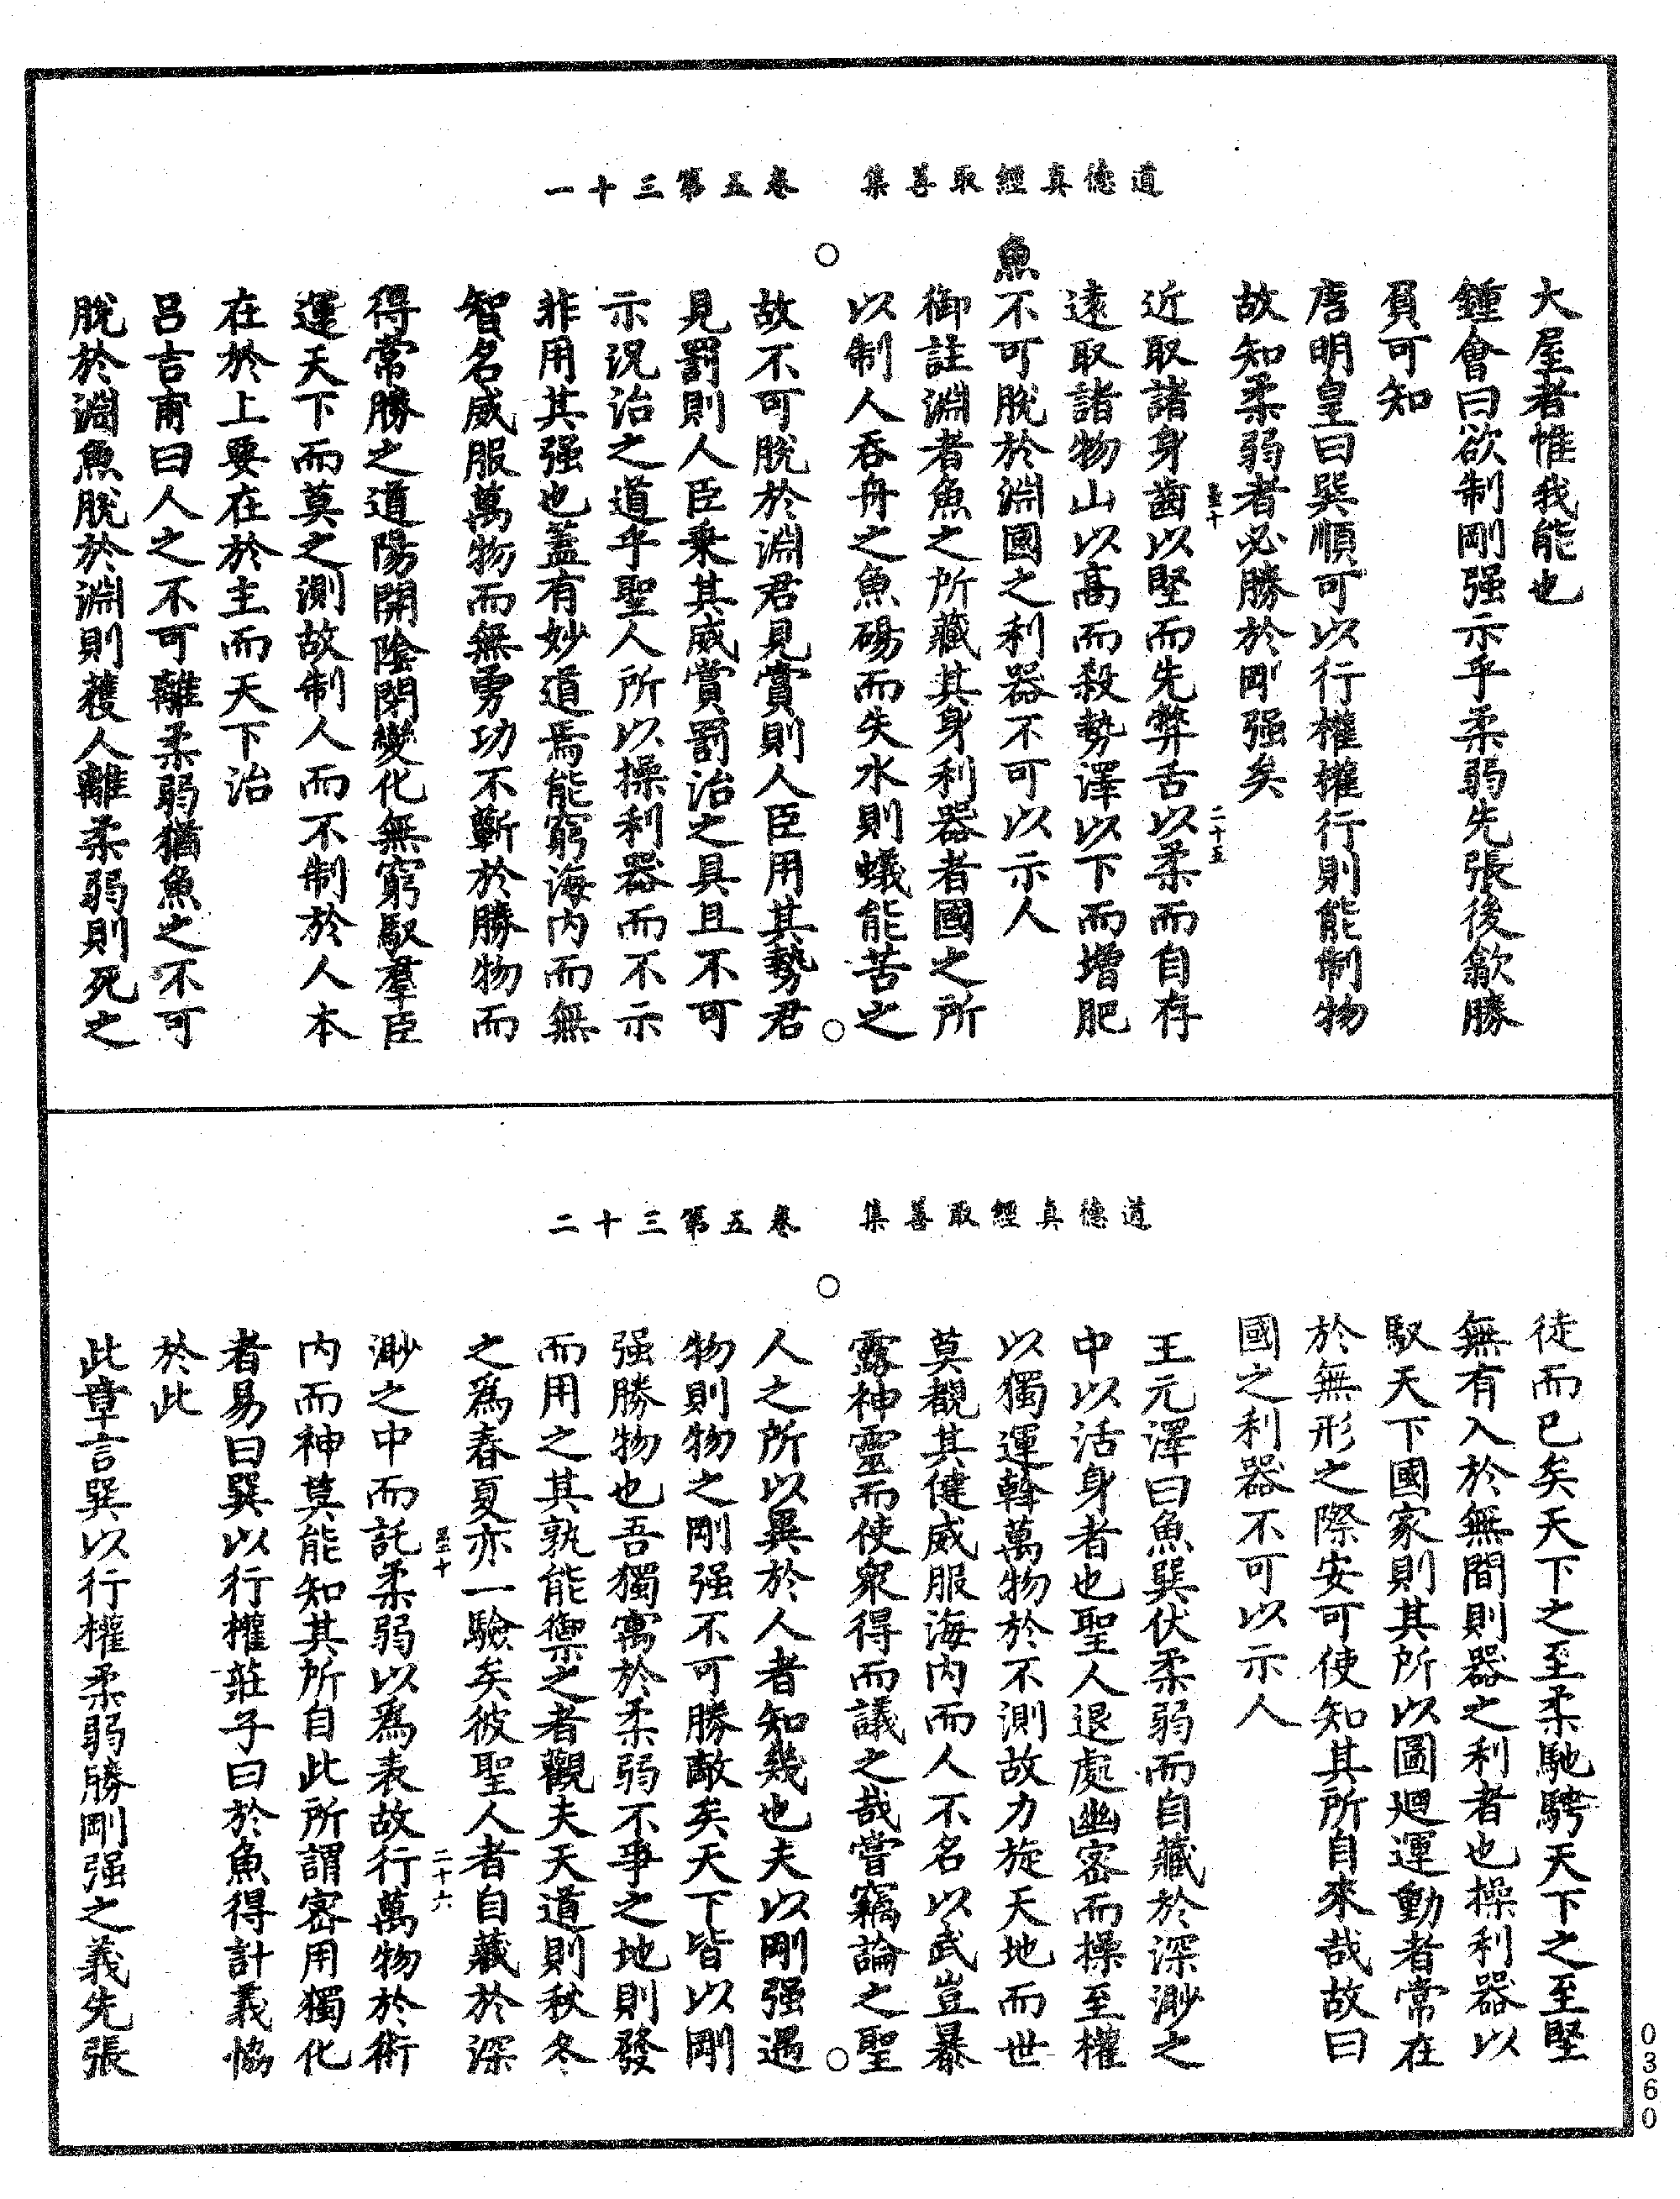 道德真經取善集　卷五第三十一
大屋者惟我能也
鍾會曰欲制剛强示乎柔弱先張後歙勝
負可知
唐明皇曰巽順可以行權權行則能制物
故知柔弱者必勝於剛强矣
近取諸身齒以堅而先弊舌以柔而自存
遠取諸物山以高而殺勢澤以下而增肥
魚不可脫於淵國之利器不可以示人
御註淵者魚之所藏其身利器者國之所
以制人吞舟之魚碭而失水則蟻能苦之
故不可脫於淵君見賞則人臣用其勢君
見罰則人臣乘其威賞罰治之具且不可
示況治之道乎聖人所以操利器而不示
非用其强也蓋有妙道焉能窮海內而無
智名威服萬物而無勇功不蘄於勝物而
得常勝之道陽開陰閉變化無窮馭羣臣
運天下而莫之測故制人而不制於人本
在於上要在於主而天下治
呂吉甫曰人之不可離柔弱猶魚之不可
脫於淵魚脫於淵則獲人離柔弱則死之
二十五
道德真經取善集　卷五第三十二
徒而已矣天下之至柔馳騁天下之至堅
無有入於無間則器之利者也操利器以
馭天下國家則其所以圖廻運動者常在
於無形之際安可使知其所自來哉故曰
國之利器不可以示人
王元澤曰魚巽伏柔弱而自藏於深渺之
中以活身者也聖人退處幽密而操至權
以獨運斡萬物於不測故力旋天地而世
莫覩其健威服海內而人不名以武豈暴
露神靈而使衆得而議之哉嘗竊論之聖
人之所以異於人者知幾也夫以剛强遇
物則物之剛强不可勝敵矣天下皆以剛
强勝物也吾獨寓於柔弱不爭之地則發
而用之其孰能禦之者觀夫天道則秋冬
之爲春夏亦一驗矣彼聖人者自藏於深
渺之中而託柔弱以爲表故行萬物於術
內而神莫能知其所自此所謂密用獨化
者易曰巽以行權莊子曰於魚得計義恊
於此
此章言巽以行權柔弱勝剛强之義先張
二十六
0360